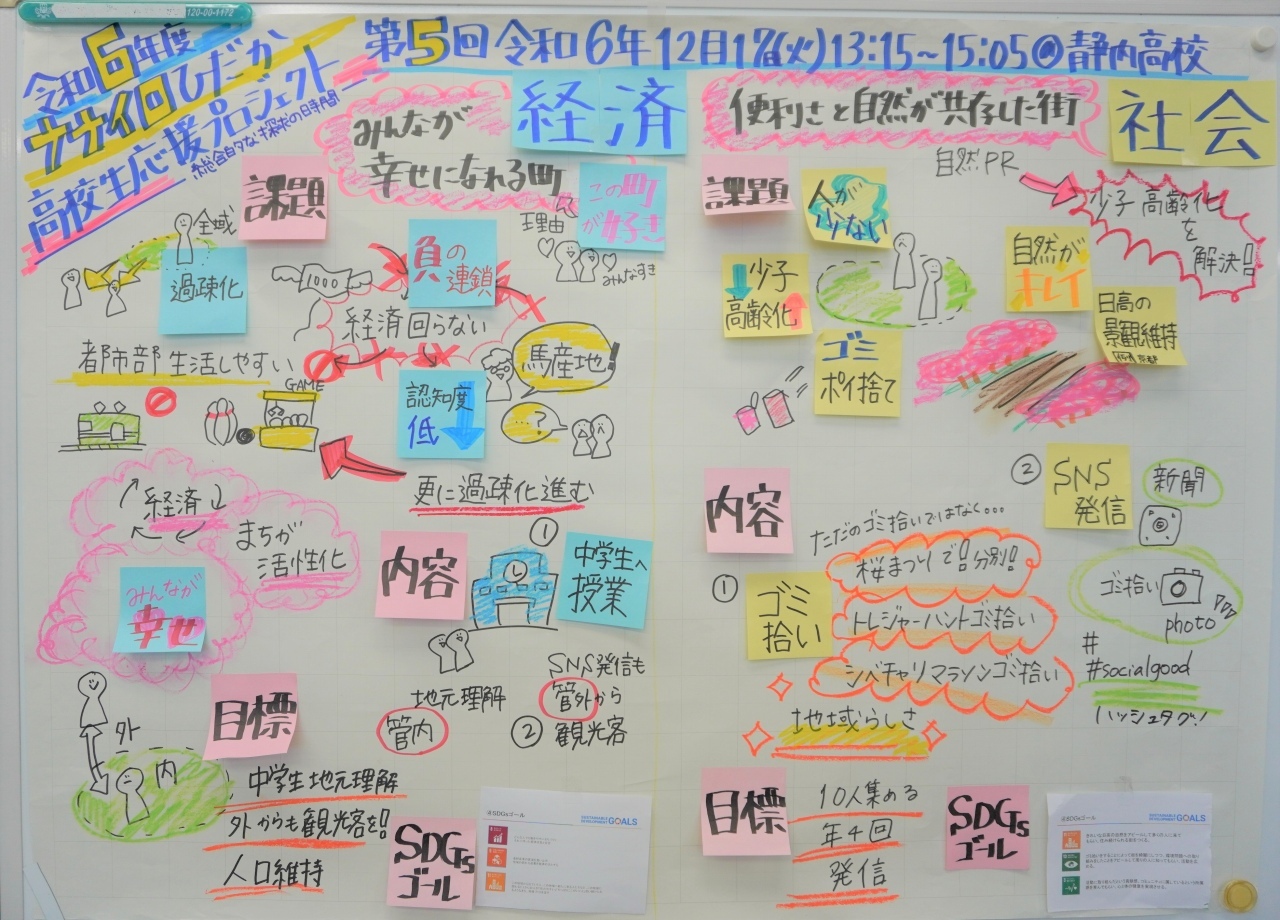 120-00-1172
令和6年度
ナナイロひだか
高校生応援プロジェクト
総合的な探求の時間
第5回 令和6年12月17日(火)13:15~15:05@静内高校
みんなが
幸せになれる町
経済
課題
この町
が好き
理由
みんなすき
全域
過疎化
1000
負の
連鎖
経済回らない
都市部生活しやすい
GAME
馬産地!
認知度
低
…?
更に過疎化進む
経済
まちが
活性化
みんなが
幸せ
内容
①
中学生へ
授業
地元理解
管内
SNS発信も
管外から
② 観光客
外
内
目標
中学生地元理解
外からも観光客を!
人口維持
SDGs
ゴール
SDGsゴール
SUSTAINABLE
DEVELOPMENT GOALS
便利さと自然が共存した街
社会
自然PR
課題
人が
少ない
少子高齢化
を
解決!!
少子
高齢化
自然が
キレイ
日高の
景観維持
ゴミ
ポイ捨て
内容
ただのゴミ拾いではなく…
①
ゴミ
拾い
桜まつりで!分別!
トレジャーハントゴミ拾い
シベチャリマラソンゴミ拾い
地域らしさ
②
SNS
発信
新聞
ゴミ拾い
photo
#
#socialgood
ハッシュタグ!
目標
10人集める
年4回
発信
SDGs
ゴール
SDGsゴール
SUSTAINABLE
DEVELOPMENT GOALS